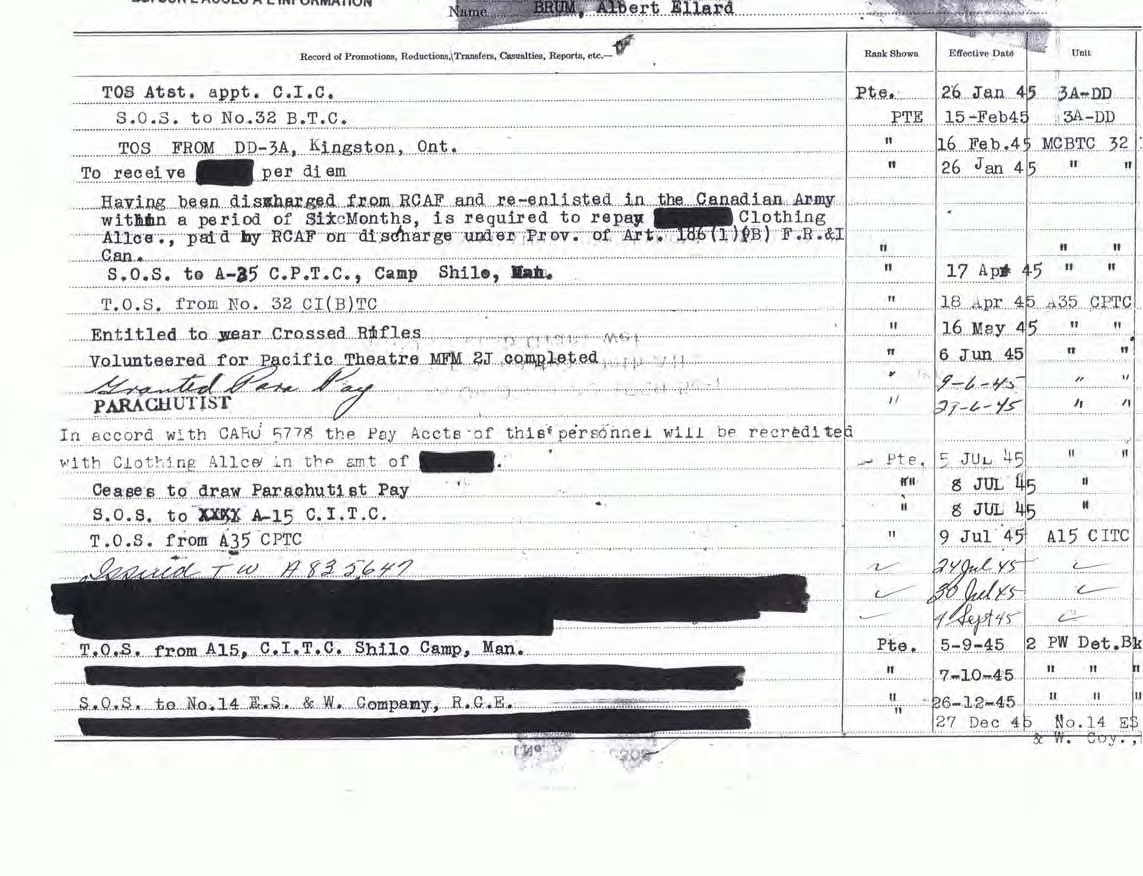 L'ACCÈS À L'INFORMATION
Name BRUM, Albert Ellard
Record of Promotions, Reductions, Transfers, Casualties, Reports, etc.— Rank Shown Effective Date Unit
TOS Atst. appt. C.I.C. Pte. 26 Jan 45 3A-DD
S.O.S. to No.32 B.T.C. PTE 15-Feb45 3A-DD
TOS FROM DD-3A, Kingston, Ont. " 16 Feb.45 MCBTC 32
To receive per diem " 26 Jan 45 " "
Having been discharged from RCAF and re-enlisted in the Canadian Army
within a period of Six Months, is required to repay Clothing
Allce., paid by RCAF on discharge under Prov. of Art. 186(1)(B) F.R.&I
Can. " " "
S.O.S. to A-35 C.P.T.C., Camp Shilo, Man. " 17 Apr 45 " "
T.O.S. from No. 32 CI(B)TC " 18 Apr 45 A35 CPTC
Entitled to wear Crossed Rifles " 16 May 45 " "
Volunteered for Pacific Theatre MFM 2J completed " 6 Jun 45 " "
Granted Para Pay " 9-6-45 " "
PARACHUTIST " 27-6-45 " "
In accord with CARO 5778 the Pay Accts of this personnel will be recredited
with Clothing Allce in the amt of . Pte. 5 JUL 45 " "
Ceases to draw Parachutist Pay " 8 JUL 45 "
S.O.S. to XXXX A-15 C.I.T.C. " 8 JUL 45 "
T.O.S. from A35 CPTC " 9 Jul 45 A15 CITC
Issued T W A835647 24 Jul 45
30 Jul 45
4 Sept 45
T.O.S. from A15, C.I.T.C. Shilo Camp, Man. Pte. 5-9-45 2 PW Det.Bk
" 7-10-45 " " "
S.O.S. to No.14 E.S. & W. Company, R.C.E. " 26-12-45 " " "
" 27 Dec 45 No.14 ES
& W. Coy.,